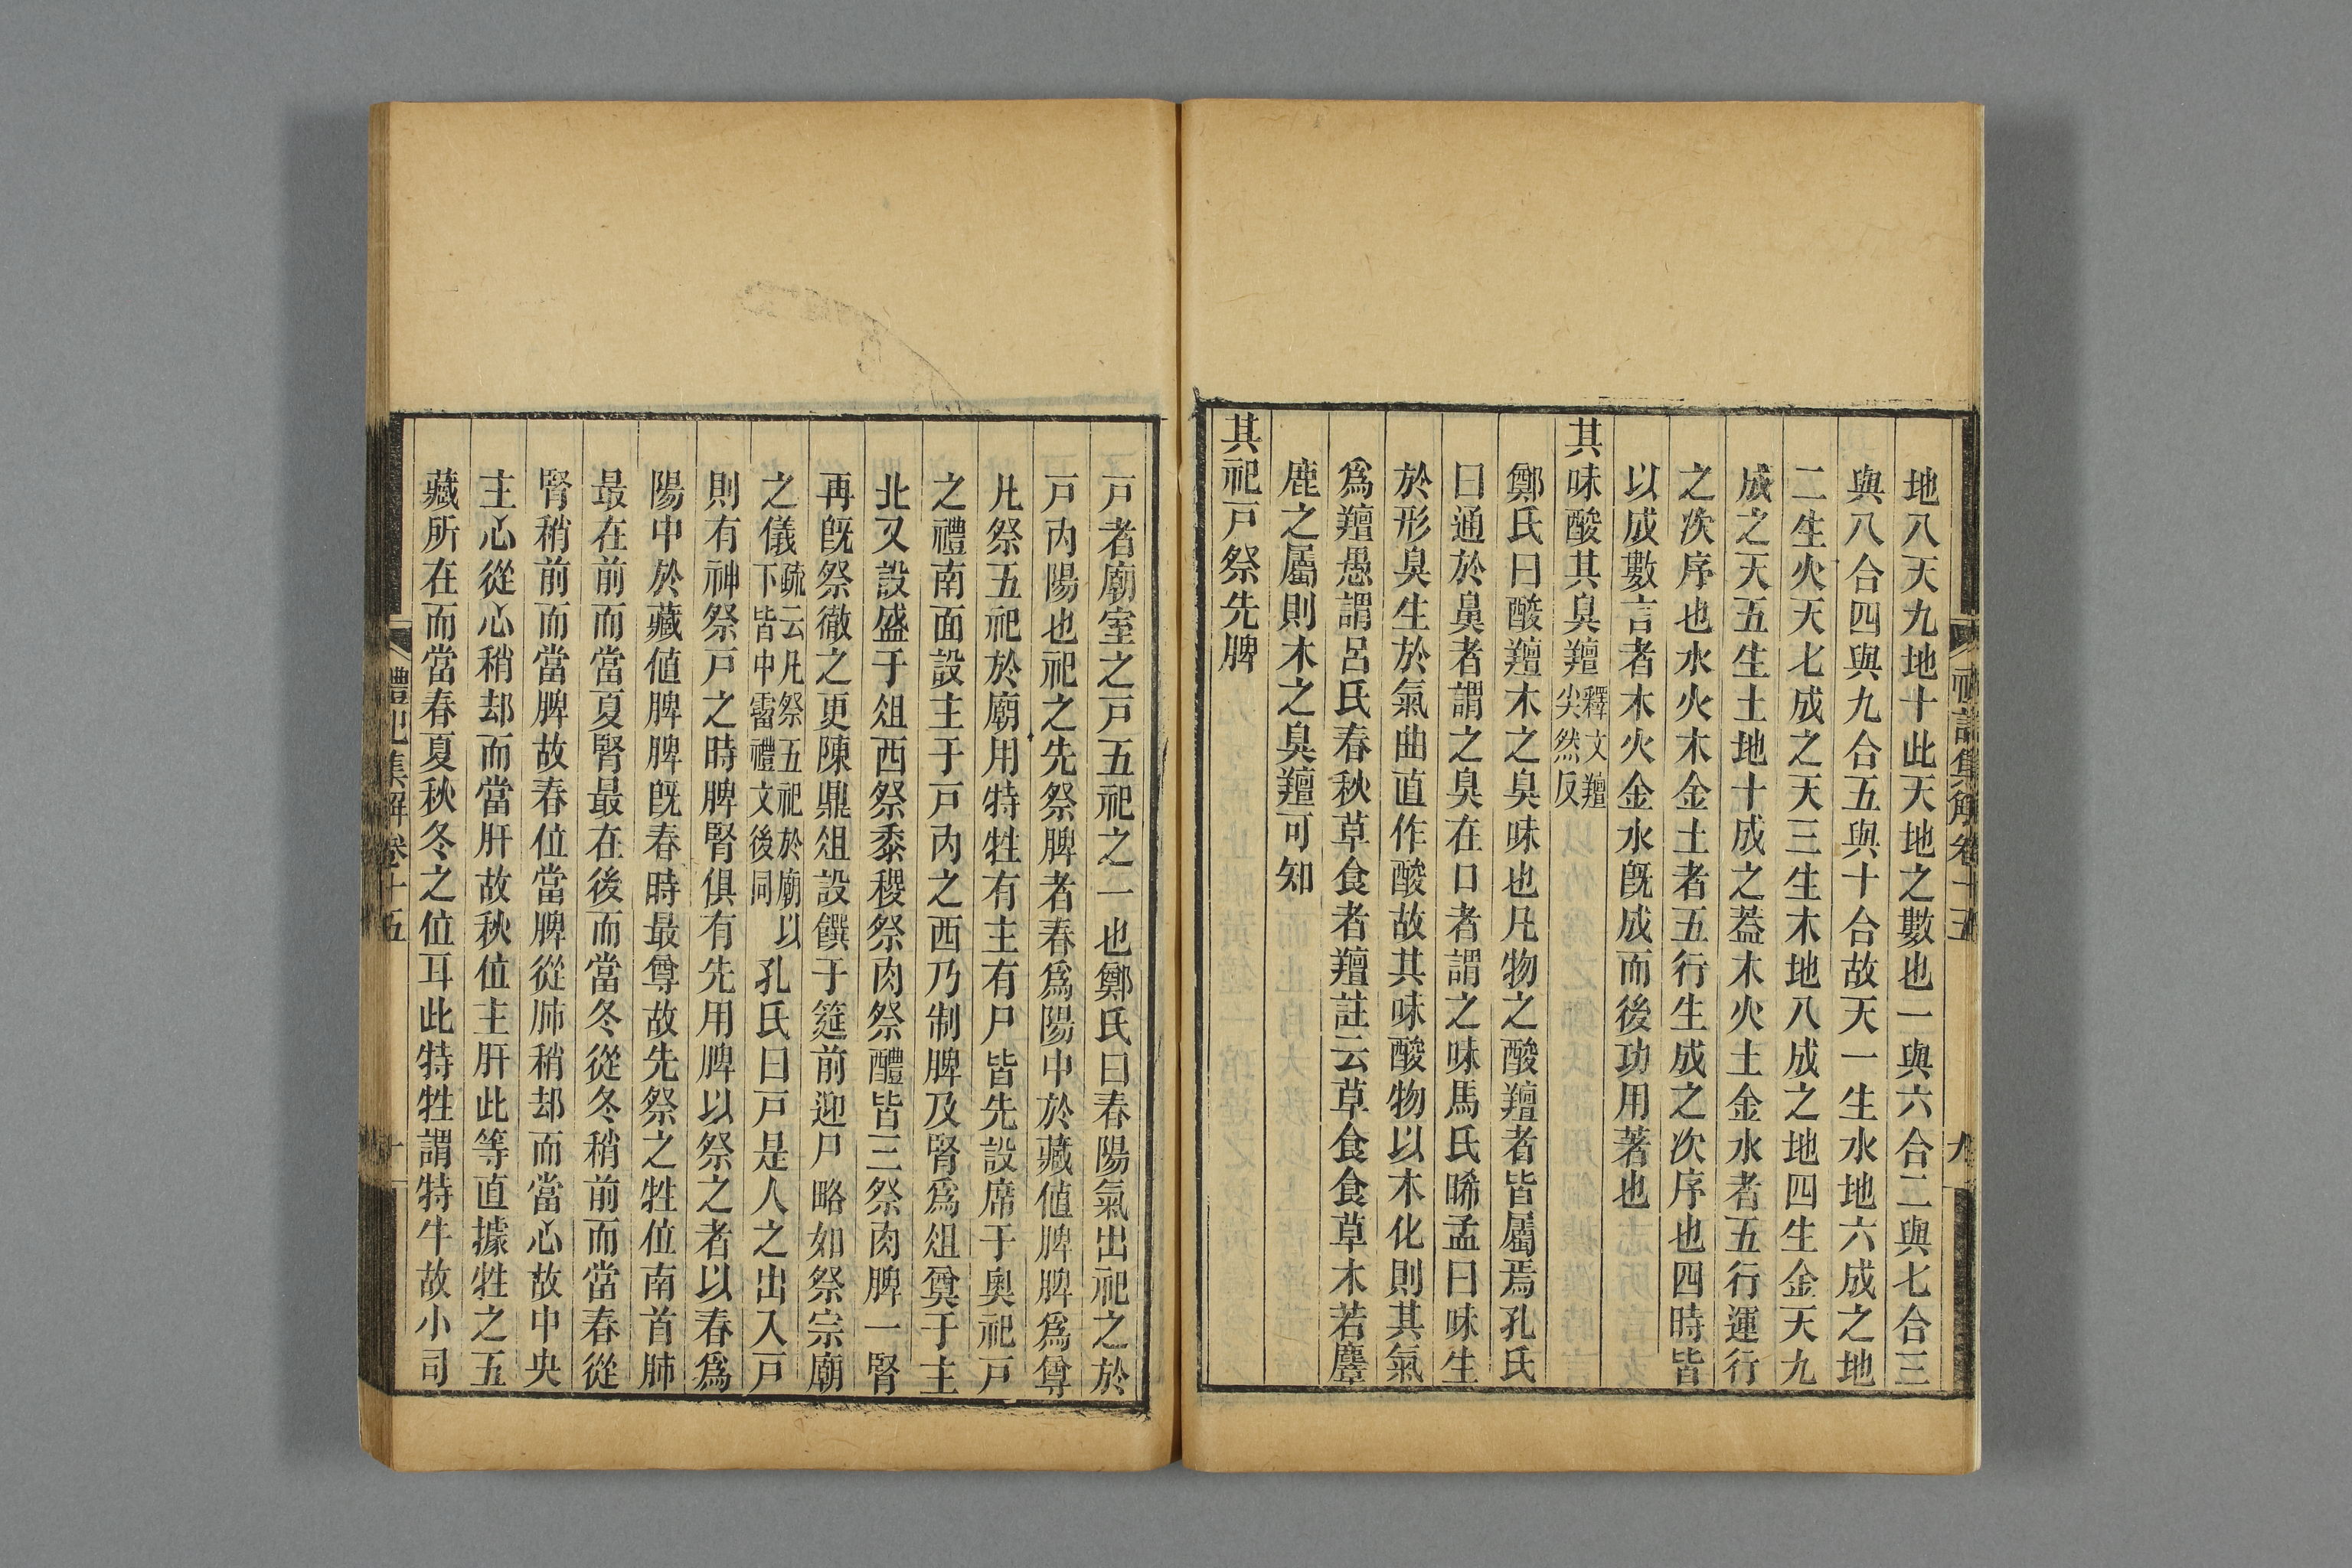 地八天九地十此天地之數也一與六合二與七合三
與八合四與九合五與十合故天一生水地六成之地
二生火天七成之天三生木地八成之地四生金天九
成之天五生土地十成之葢木火土金水者五行運行
之次序也水火木金土者五行生成之次序也四時皆
以成數言者木火金水旣成而後功用著也
其味酸其臭羶釋文羶尖然反
鄭氏曰酸羶木之臭味也凡物之酸羶者皆屬焉孔氏
曰通於鼻者謂之臭在口者謂之味馬氏晞孟曰味生
於形臭生於氣曲直作酸故其味酸物以木化則其氣
爲羶愚謂呂氏春秋草食者羶註云草食食草木若麞
鹿之屬則木之臭羶可知
其祀戸祭先脾
戸者廟室之戸五祀之一也鄭氏曰春陽氣出祀之於
戸內陽也祀之先祭脾者春爲陽中於藏値脾脾爲尊
凡祭五祀於廟用特牲有主有尸皆先設席于奧祀戸
之禮南面設主于戸內之西乃制脾及腎爲俎奠于主
北又設盛于俎西祭黍稷祭肉祭醴皆三祭肉脾一腎
再旣祭徹之更陳鼎俎設饌于筵前迎尸略如祭宗廟
之儀疏云凡祭五祀於廟以下皆中霤禮文後同孔氏曰戸是人之出入戸
則有神祭戸之時脾腎俱有先用脾以祭之者以春爲
陽中於藏値脾脾旣春時最尊故先祭之牲位南首肺
最在前而當夏腎最在後而當冬從冬稍前而當春從
腎稍前而當脾故春位當脾從肺稍却而當心故中央
主心從心稍却而當肝故秋位主肝此等直據牲之五
藏所在而當春夏秋冬之位耳此特牲謂特牛故小司
禮記集解卷十五
九
禮記集解卷十五
十